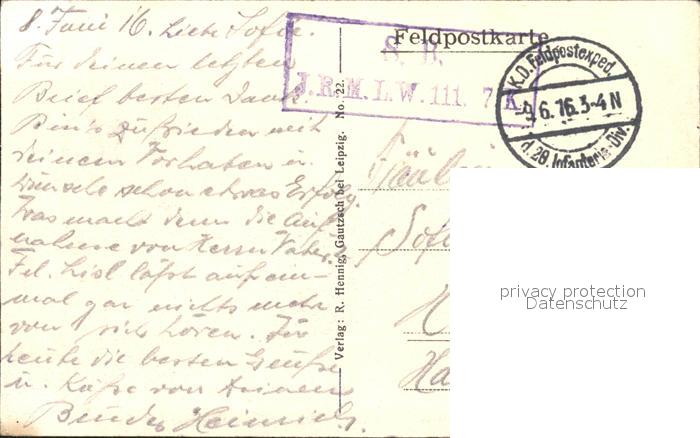 8. Juni 16. Liebe Sofie.
Für deinen letzten
Brief besten Dank.
Bin zufrieden mit
deinem Vorhaben u.
wünsche schon etwas Erfolg.
Was macht denn die Auf-
nahme von Herrn Vater?
Frl. Lisl läßt auf ein-
mal gar nichts mehr
von sich hören. Für
heute die besten Grüße
u. Küße von deinem
Bruder Heinrich.
Verlag: R. Hennig, Gautzsch bei Leipzig. No. 22.
Feldpostkarte
S. B.
J.R.M.L.W. 111. 7. K.
K.D. Feldpostexped.
-9.6.16.3-4N
d. 28. Infanterie-Div.
Fräulein
Sofie
privacy protection
Datenschutz